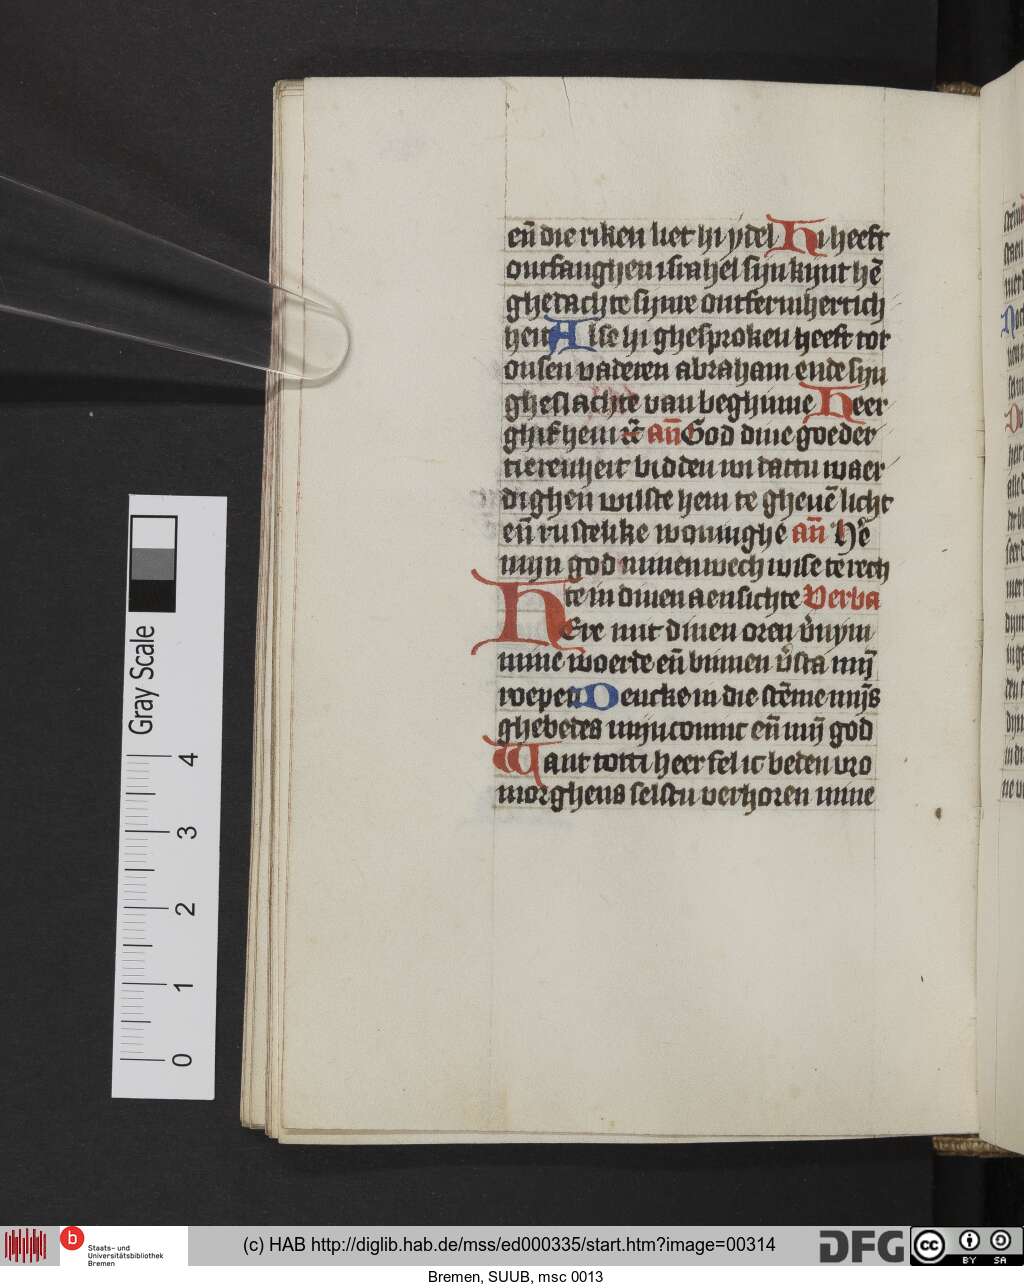 en̄ die riken liet hi ydel Hi heeft
ontfanghen israhel sijn kijnt hē
ghedachte sijnre ontfermhertich
heit Alse hi ghesproken heeft tot
onsen vaderen abraham ende sijn
gheslachte van beghinne Heer
ghif hem r̄c an̄ God dine goeder
tierenheit bidden wi dattu waer
dighen wilste hem te gheuē licht
en̄ rustelike woninghe an̄ He
mijn god minen wech wise te rech
te in dinen aensichte Verba
HEre mit dinen oren v̓nym
mine woerde en̄ binnen v̓sta mij̄
roepen Dencke in die stēme mijs
ghebedes mijn coninc en̄ mij̄ god
Want totti heer sel ic beden vro
morghens selstu verhoren mine
Gray Scale
4
3
2
1
0
b
Staats- und
Universitätsbibliothek
Bremen
(c) HAB http://diglib.hab.de/mss/ed000335/start.htm?image=00314
DFG
cc
BY SA
Bremen, SUUB, msc 0013